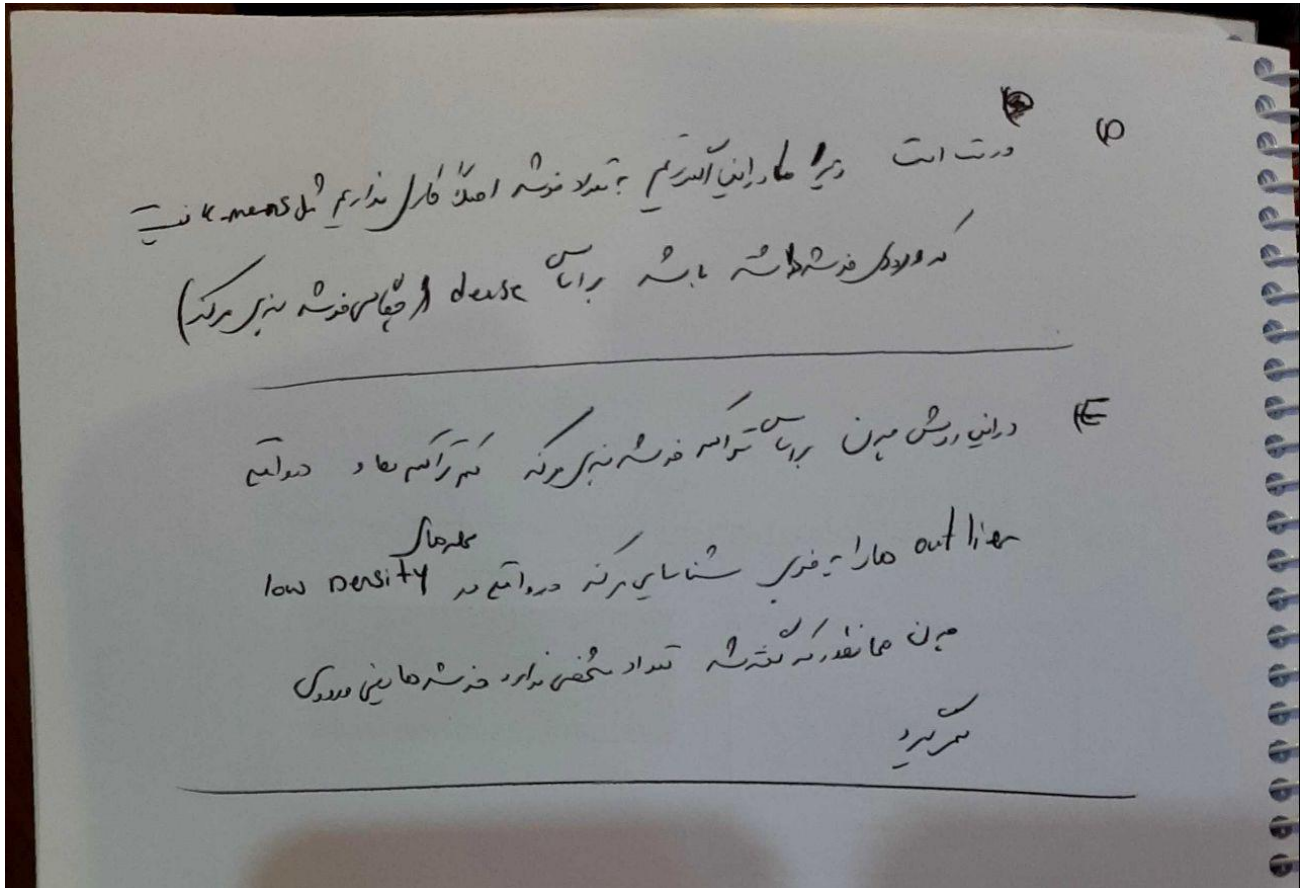 درست است زیرا ما در این الگوریتم به تعداد خوشه اصلا کاری نداریم مثل k-means نیست
که ورودی خوشه داشته باشه براساس dense خوشه بندی میکند)
در این روش چون براساس تراکم خوشه بندی میکنه که تراکم ها و در واقع
outlier ها را به خوبی شناسایی میکنه در واقع در محل های low Density
چون همانطور که گفته شد تعداد مشخصی ندارد خوشه ها یعنی ورودی
نمیگیرد